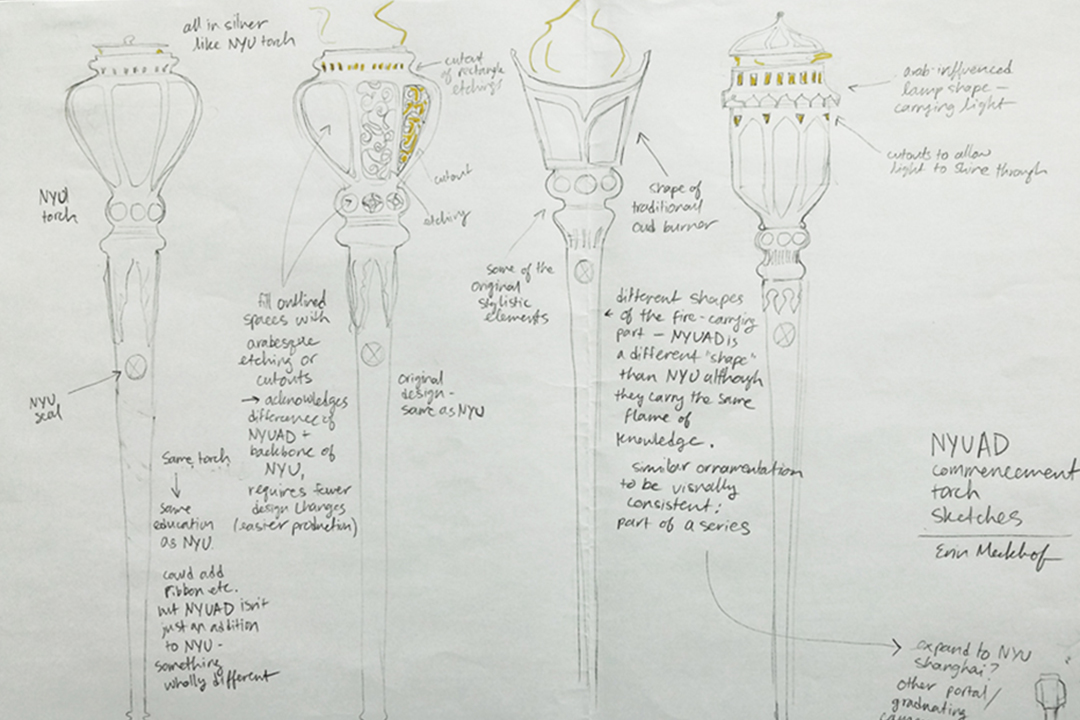 all in silver
like NYU torch
NYU
torch
NYU
seal
Same torch
same
education
as NYU.
could add
ribbon etc.
but NYUAD isn't
just an addition
to NYU -
something
wholly different
cutout
of rectangle
etchings
cutout
etching
fill outlined
spaces with
arabesque
etching or
cutouts
→ acknowledges
difference of
NYUAD +
backbone of
NYU,
requires fewer
design changes
(easier production)
original
design -
same as NYU
some of the
original
stylistic
elements
shape of
traditional
oud burner
different shapes
of the fire-carrying
part - NYUAD is
a different "shape"
than NYU although
they carry the same
flame of
knowledge.
similar ornamentation
to be visually
consistent;
part of a series
arab-influenced
lamp shape -
carrying light
cutouts to allow
light to shine through
NYUAD
commencement
torch
sketches
Erin Meekhof
expand to NYU
Shanghai?
other portal/
graduating